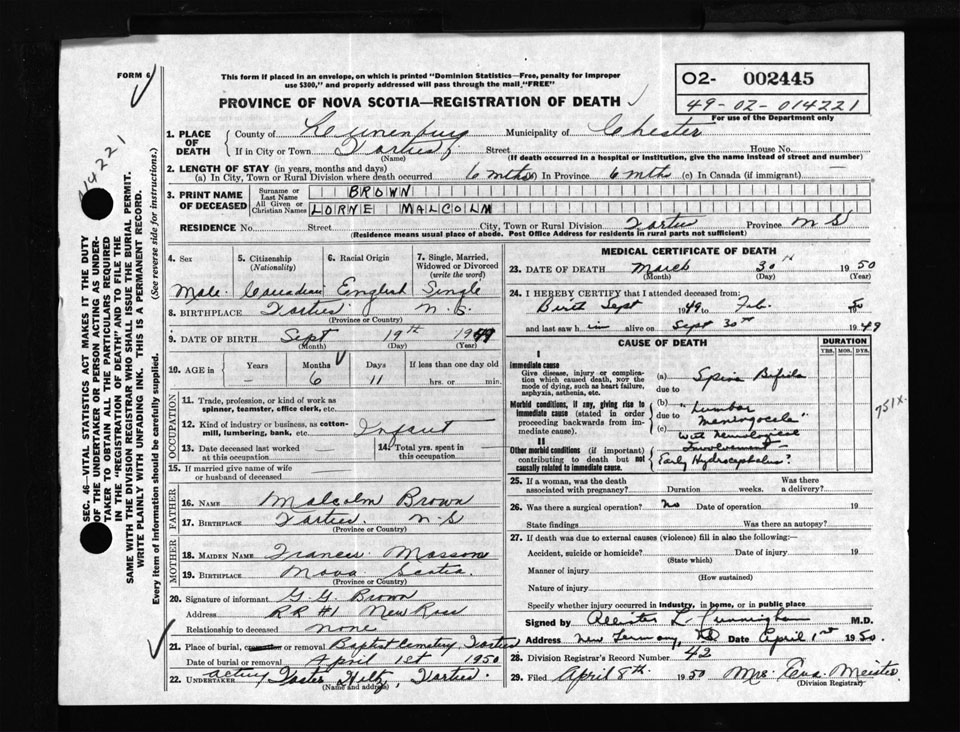 FORM 6
This form if placed in an envelope, on which is printed "Dominion Statistics—Free, penalty for improper
use $300," and properly addressed will pass through the mail "FREE"
PROVINCE OF NOVA SCOTIA—REGISTRATION OF DEATH
O2- 002445
49-02-014221
For use of the Department only
14221
SEC. 46—VITAL STATISTICS ACT MAKES IT THE DUTY
OF THE UNDERTAKER OR PERSON ACTING AS UNDER-
TAKER TO OBTAIN ALL THE PARTICULARS REQUIRED
IN THE "REGISTRATION OF DEATH" AND TO FILE THE
SAME WITH THE DIVISION REGISTRAR WHO SHALL ISSUE THE BURIAL PERMIT.
WRITE PLAINLY WITH UNFADING INK. THIS IS A PERMANENT RECORD.
Every item of Information should be carefully supplied. (See reverse side for instructions.)
1. PLACE OF DEATH County of Lunenburg Municipality of Chester
If in City or Town Forties Street House No.
(Name) (If death occurred in a hospital or institution, give the name instead of street and number)
2. LENGTH OF STAY (in years, months and days)
(a) In City, Town or Rural Division where death occurred 6 mths (b) In Province 6 mths (c) In Canada (if immigrant)
3. PRINT NAME OF DECEASED Surname or Last Name BROWN
All Given or Christian Names LORNE MALCOLM
RESIDENCE No. Street City, Town or Rural Division Forties Province N S
(Residence means usual place of abode. Post Office Address for residents in rural parts not sufficient)
4. Sex 5. Citizenship (Nationality) 6. Racial Origin 7. Single, Married, Widowed or Divorced (write the word)
Male Canadian English Single
8. BIRTHPLACE Forties N. S.
(Province or Country)
9. DATE OF BIRTH Sept 19th 1949
(Month) (Day) (Year)
10. AGE in Years Months Days If less than one day old
— 6 11 hrs. or min.
OCCUPATION
11. Trade, profession, or kind of work as
spinner, teamster, office clerk, etc.
12. Kind of industry or business, as cotton-
mill, lumbering, bank, etc. Infant
13. Date deceased last worked
at this occupation
14. Total yrs. spent in
this occupation
15. If married give name of wife
or husband of deceased
FATHER
16. NAME Malcolm Brown
17. BIRTHPLACE Forties. N. S
(Province or Country)
MOTHER
18. MAIDEN NAME Frances Masson
19. BIRTHPLACE Nova Scotia
(Province or Country)
20. Signature of informant G. G. Brown
Address RR #1 New Ross
Relationship to deceased none
21. Place of burial, cremation or removal Baptist Cemetery, Forties
Date of burial or removal April 1st 1950
22. UNDERTAKER acting Foster Hiltz, Forties.
(Name and address)
MEDICAL CERTIFICATE OF DEATH
23. DATE OF DEATH March 30th 1950
(Month) (Day) (Year)
24. I HEREBY CERTIFY that I attended deceased from:
Birth Sept 1949 to Feb. 50
and last saw him alive on Sept 30th 1949
CAUSE OF DEATH
DURATION
YRS. MOS. DYS.
I
Immediate cause
Give disease, injury or complica-
tion which caused death, not the
mode of dying, such as heart failure,
asphyxia, asthenia, etc.
(a) Spina Bifida
due to
Morbid conditions, if any, giving rise to
immediate cause (stated in order
proceeding backwards from im-
mediate cause).
(b) "Lumbar
due to Meningocele"
(c) with neurological
involvement
II
Other morbid conditions (if important)
contributing to death but not
causally related to immediate cause.
Early Hydrocephalus?
751X-
25. If a woman, was the death
associated with pregnancy? Duration weeks. Was there a delivery?
26. Was there a surgical operation? No Date of operation 19
State findings Was there an autopsy?
27. If death was due to external causes (violence) fill in also the following:—
Accident, suicide or homicide? Date of injury 19
(State which)
Manner of injury
(How sustained)
Nature of injury
Specify whether injury occurred in industry, in home, or in public place
Signed by L Cunningham M.D.
Address New Germany, NS Date April 1st 1950.
28. Division Registrar's Record Number 42
29. Filed April 8th 1950 Mrs. Eva Meister
(Division Registrar)